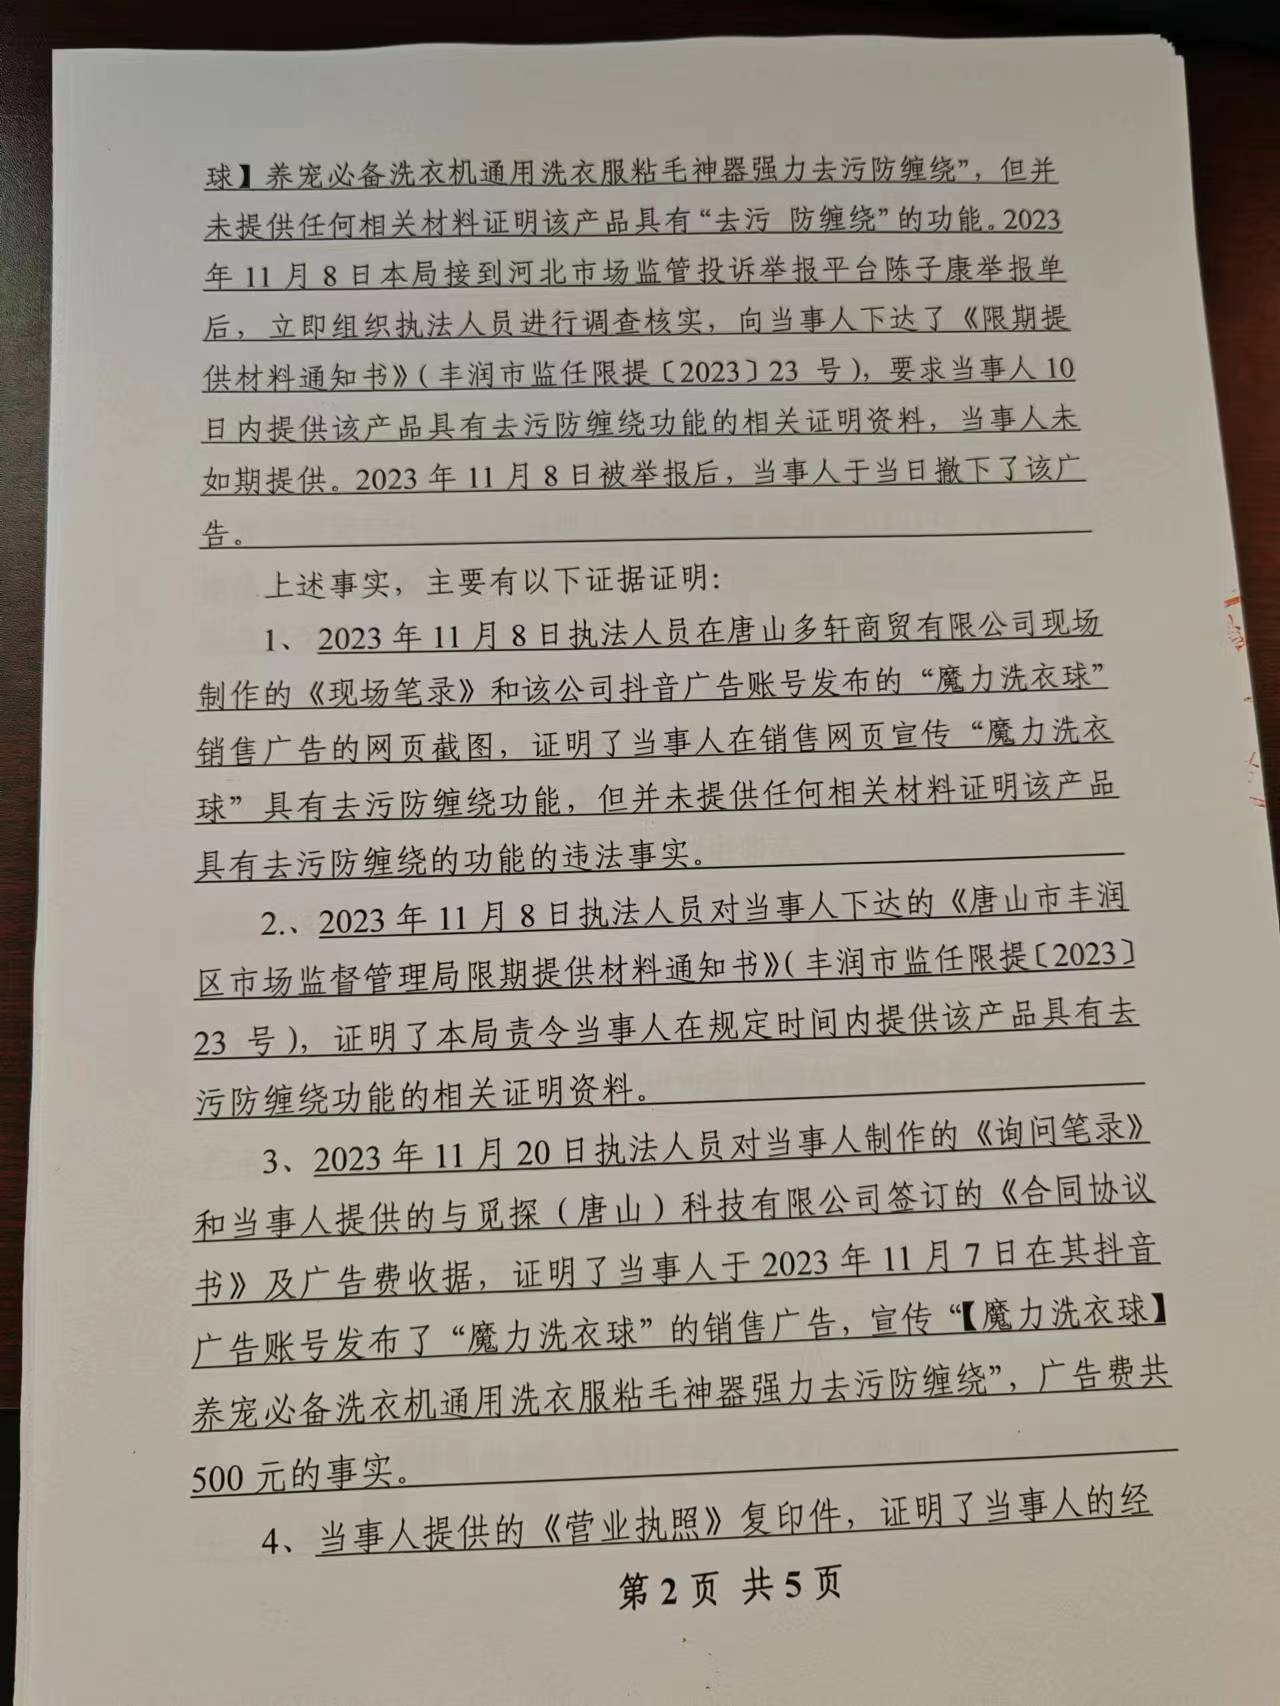 球】养宠必备洗衣机通用洗衣服粘毛神器强力去污防缠绕”，但并
未提供任何相关材料证明该产品具有“去污 防缠绕”的功能。2023
年 11 月 8 日本局接到河北市场监管投诉举报平台陈子康举报单
后，立即组织执法人员进行调查核实，向当事人下达了《限期提
供材料通知书》（丰润市监任限提〔2023〕23 号），要求当事人 10
日内提供该产品具有去污防缠绕功能的相关证明资料，当事人未
如期提供。2023 年 11 月 8 日被举报后，当事人于当日撤下了该广
告。
上述事实，主要有以下证据证明：
1、2023 年 11 月 8 日执法人员在唐山多轩商贸有限公司现场
制作的《现场笔录》和该公司抖音广告账号发布的“魔力洗衣球”
销售广告的网页截图，证明了当事人在销售网页宣传“魔力洗衣
球”具有去污防缠绕功能，但并未提供任何相关材料证明该产品
具有去污防缠绕的功能的违法事实。
2.、2023 年 11 月 8 日执法人员对当事人下达的《唐山市丰润
区市场监督管理局限期提供材料通知书》（丰润市监任限提〔2023〕
23 号），证明了本局责令当事人在规定时间内提供该产品具有去
污防缠绕功能的相关证明资料。
3、2023 年 11 月 20 日执法人员对当事人制作的《询问笔录》
和当事人提供的与觅探（唐山）科技有限公司签订的《合同协议
书》及广告费收据，证明了当事人于 2023 年 11 月 7 日在其抖音
广告账号发布了“魔力洗衣球”的销售广告，宣传“【魔力洗衣球】
养宠必备洗衣机通用洗衣服粘毛神器强力去污防缠绕”，广告费共
500 元的事实。
4、当事人提供的《营业执照》复印件，证明了当事人的经
第 2 页 共 5 页